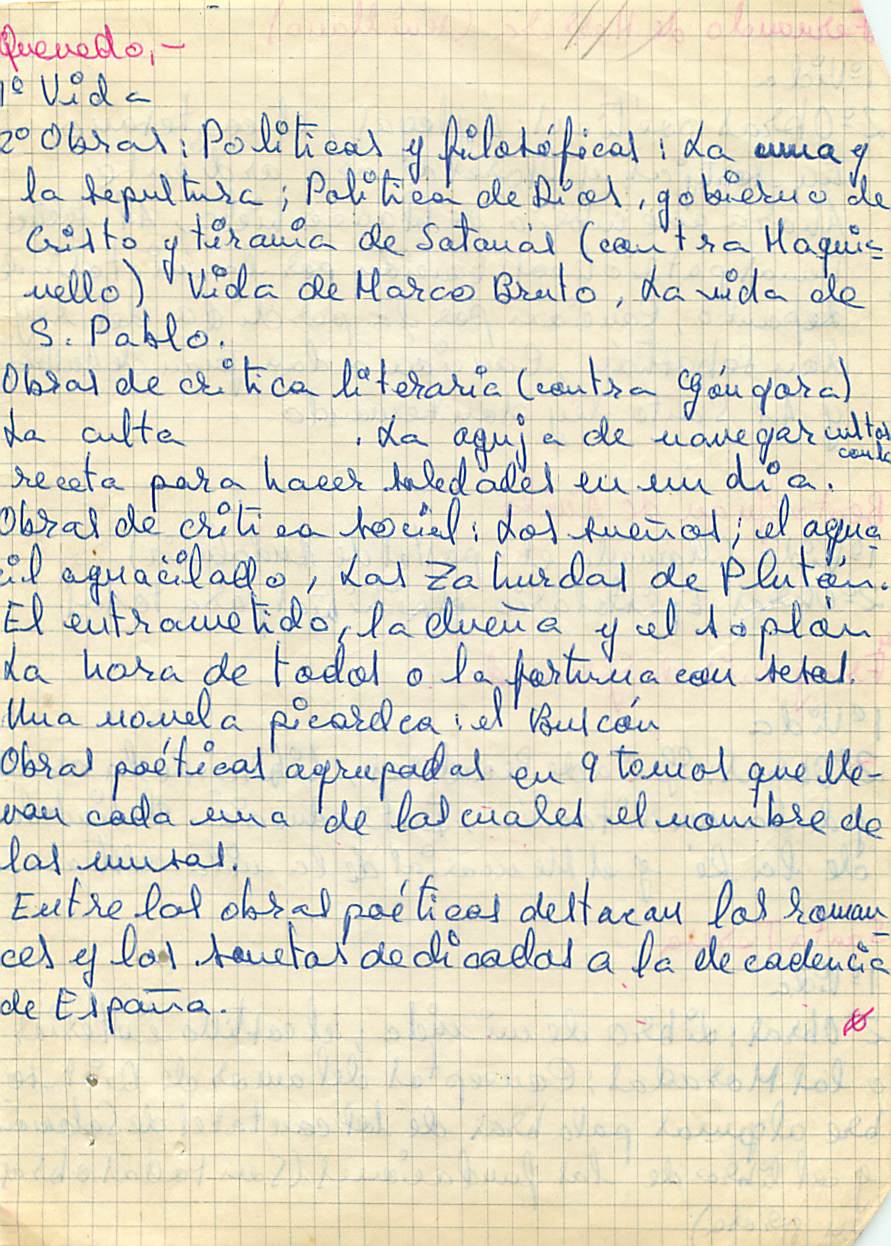 Quevedo,-
1º Vida
2º Obras: Políticas y filosóficas: La cuna y
la sepultura; Política de Dios, gobierno de
Cristo y tiranía de Satanás (contra Maquia=
vello) Vida de Marco Bruto, La vida de
S. Pablo.
Obras de crítica literaria (contra Góngora)
La culta . La aguja de navegar cultos con la
receta para hacer soledades en un día.
Obras de crítica social: Los sueños; el agua
cil aguacilado, Las Zahurdas de Plutón.
El entrometido, la dueña y el soplón
La hora de todos o la fortuna con seso.
Una novela picaresca: el Buscón
Obras poéticas agrupadas en 9 tomos que lle-
van cada una de las cuales el nombre de
las musas.
Entre las obras poéticas destacan los roman
ces y los sonetos dedicados a la decadencia
de España.